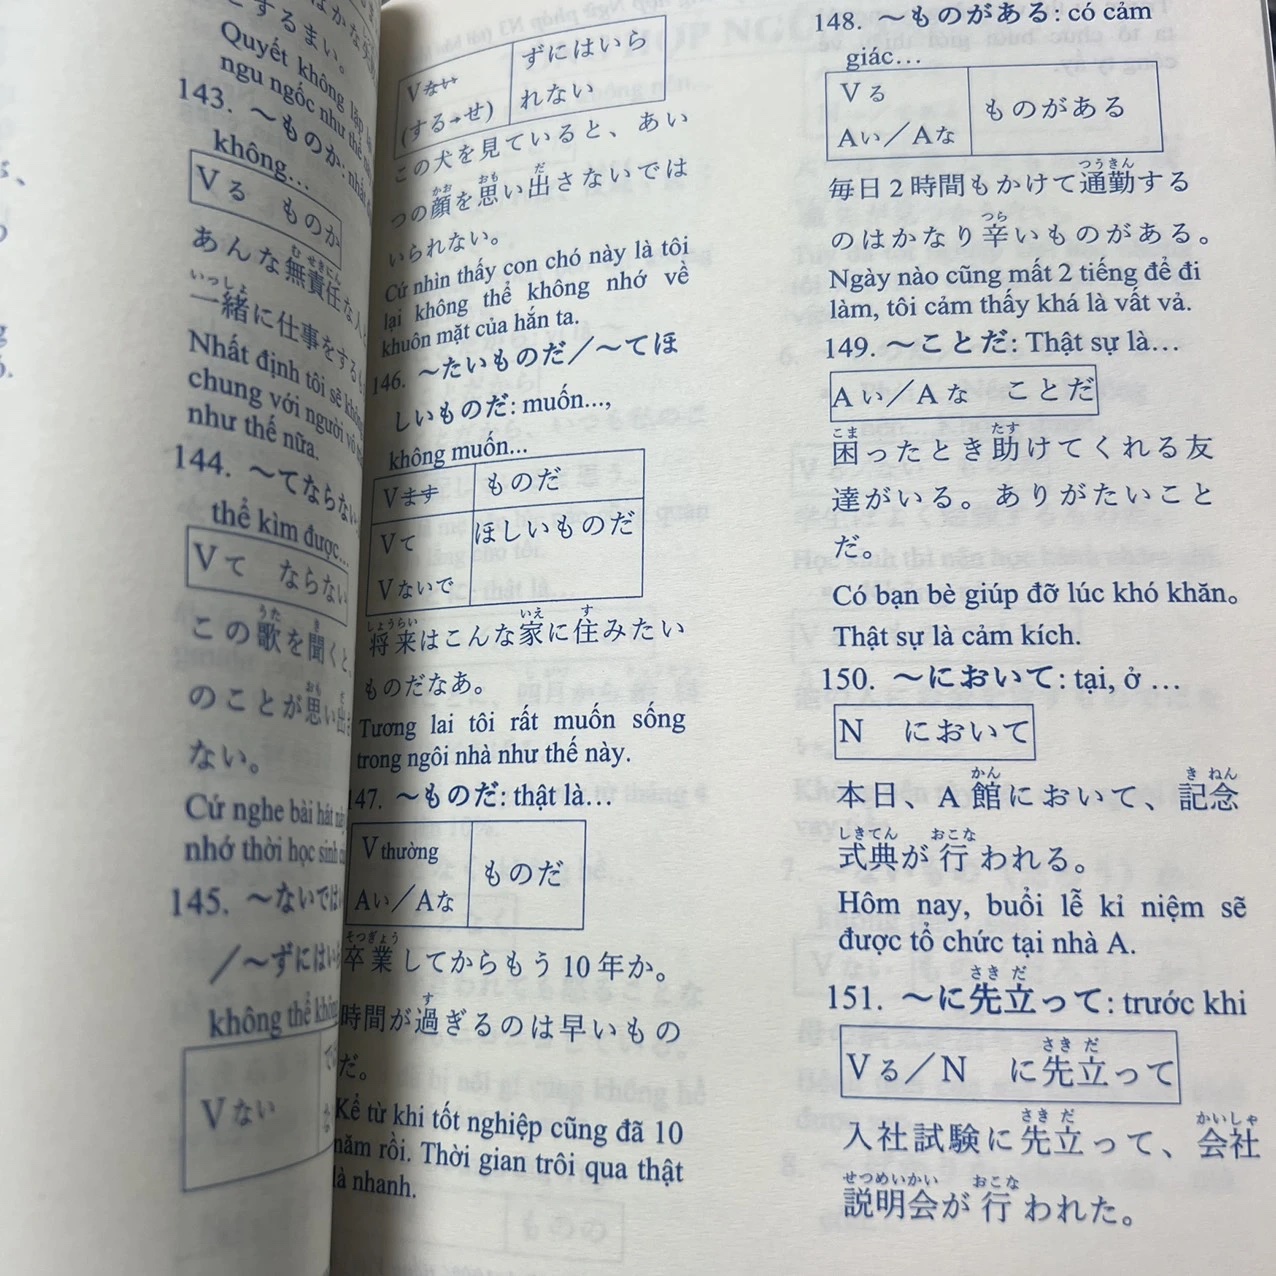 とするまい。
Quyết không lặp
ngu ngốc như thế
143. ～ものか: nhất
không...
Vる　ものか
あんな無責任な人
一緒に仕事をする
Nhất định tôi sẽ không
chung với người vô
như thế nữa.
144. ～てならない
thể kìm được...
Vて　ならない
この歌を聞くと、
のことが思い出
ない。
Cứ nghe bài hát
nhớ thời học sinh
145. ～ないでは
／～ずにはい
không thể
Vない
Vない
(する→せ)
ずにはいら
れない
この犬を見ていると、あい
つの顔を思い出さないでは
いられない。
Cứ nhìn thấy con chó này là tôi
lại không thể không nhớ về
khuôn mặt của hắn ta.
146. ～たいものだ／～てほ
しいものだ: muốn...,
không muốn...
Vます
ものだ
Vて
Vないで
ほしいものだ
将来はこんな家に住みたい
ものだなあ。
Tương lai tôi rất muốn sống
trong ngôi nhà như thế này.
147. ～ものだ: thật là...
V thường
Aい／Aな
ものだ
卒業してからもう 10 年か。
時間が過ぎるのは早いもの
だ。
Kể từ khi tốt nghiệp cũng đã 10
năm rồi. Thời gian trôi qua thật
là nhanh.
148. ～ものがある: có cảm
giác...
Vる
Aい／Aな
ものがある
毎日２時間もかけて通勤する
のはかなり辛いものがある。
Ngày nào cũng mất 2 tiếng để đi
làm, tôi cảm thấy khá là vất vả.
149. ～ことだ: Thật sự là...
Aい／Aな　ことだ
困ったとき助けてくれる友
達がいる。ありがたいこと
だ。
Có bạn bè giúp đỡ lúc khó khăn.
Thật sự là cảm kích.
150. ～において: tại, ở ...
N　において
本日、A 館において、記念
式典が行われる。
Hôm nay, buổi lễ kỉ niệm sẽ
được tổ chức tại nhà A.
151. ～に先立って: trước khi
Vる／N　に先立って
入社試験に先立って、会社
説明会が行われた。